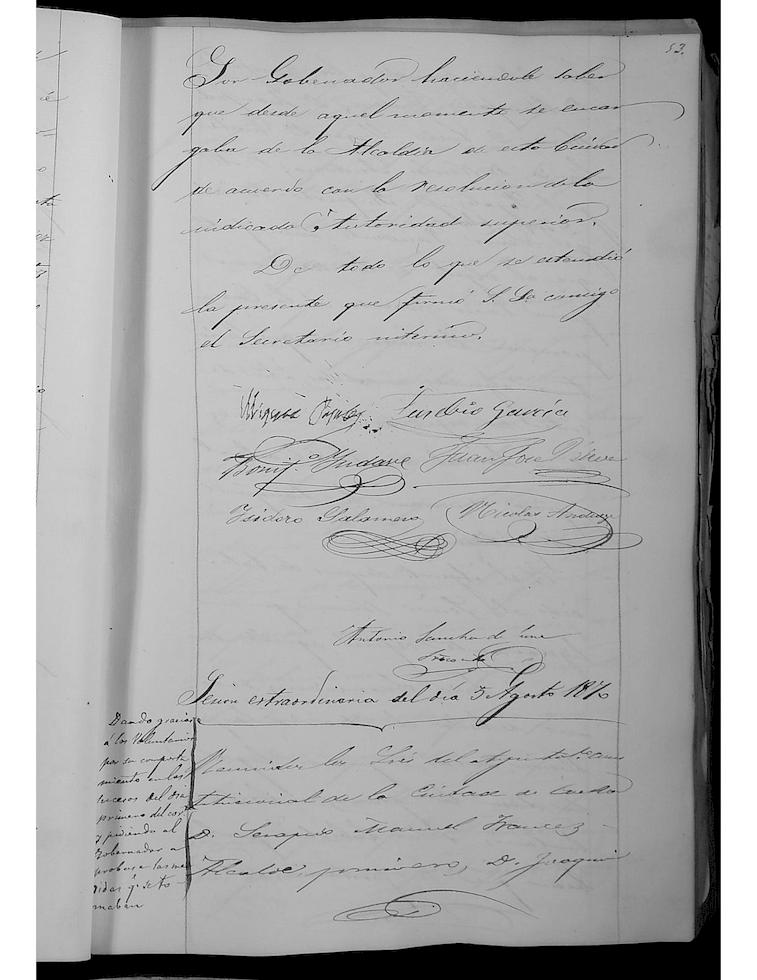 53.
Sor Gobernador haciendole saber
que desde aquel momento se encar
gaba de la Alcaldia de esta Ciudad
de acuerdo con la resolucion de la
indicada Autoridad superior.
De todo lo que se estendió
la presente que firmó S. Sa conmigo
el Secretario interino.
Eusebio Garcia
Juan José
Isidoro Salamero
Nicolas
Antonio Sancho de
Sesion extraordinaria del dia 3 Agosto 1870
Dando gracias
á los Voluntarios
por su comporta
miento en los
sucesos del dia
primero del cor.te
y pidiendo al
Gobernador a
probase las me
didas q. se to
maban
Reunidos los Sres del Ayunto
de la Ciudad de
D. Serapio Manuel
Alcalde primero, D. Joaquin